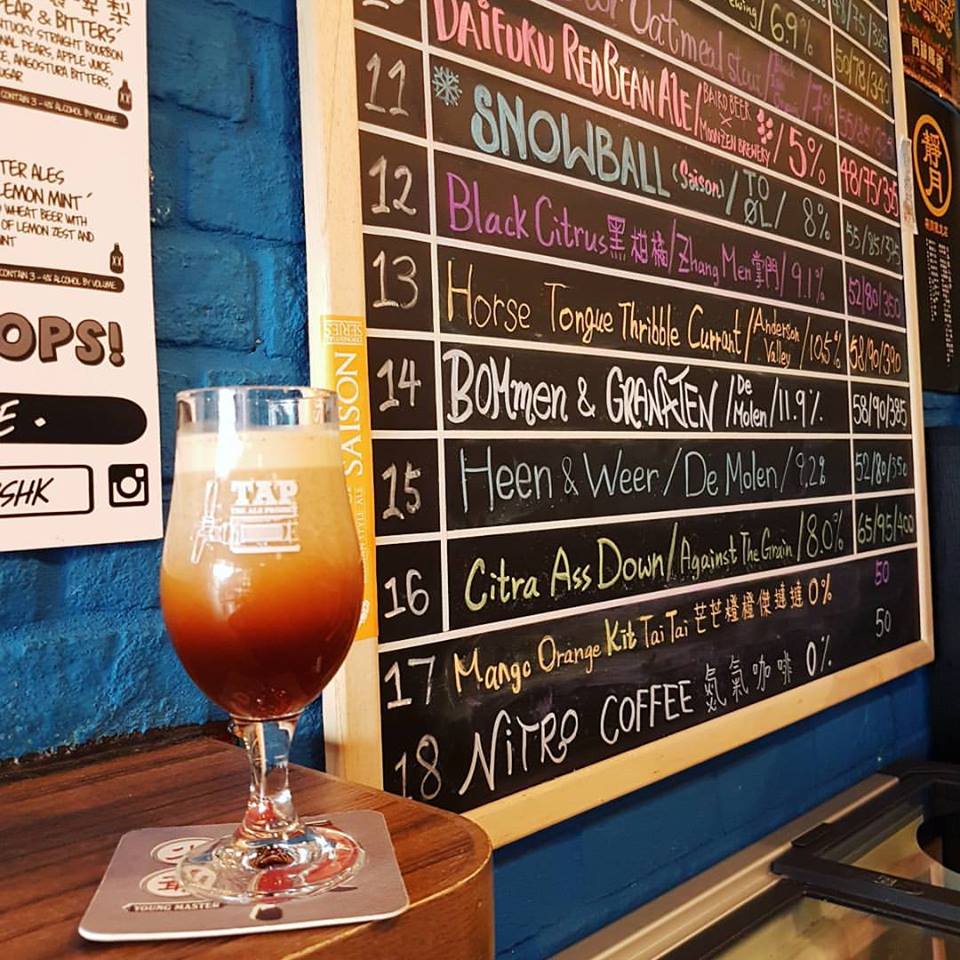 PEAR & BITTERS'
STRAIGHT BOURBON
PEARS, APPLE JUICE
ANGOSTURA BITTERS,
SUGAR
CONTAIN 3-4% ALCOHOL BY VOLUME.
ALES
LEMON MINT'
WHEAT BEER WITH
OF LEMON ZEST AND
CONTAIN 3-4% ALCOHOL BY VOLUME
OPS!
SHK
SERIES
SAISON
Oatmeal Stout / 7%
6.9%
11 DAIFUKU RED BEAN ALE / BAIRD BEER X MOONZEN BREWERY / 5% 48/75/325
SNOWBALL (Saison) / TO ØL / 8% 55/85/375
12 Black Citrus 黑柑橘 / Zhang Men 掌門 / 9.1% 52/80/350
13 Horse Tongue Thribble Currant / Anderson Valley / 10.5% 58/90/390
14 BOMMen & GRANATEN / De Molen / 11.9% 58/90/385
15 Heen & Weer / De Molen / 9.2% 52/80/350
16 Citra Ass Down / Against The Grain / 8.0% 65/95/400
17 Mango Orange Kit Tai Tai 0% 50
18 NiTRO COFFEE 氮氣咖啡 0% 50
靜月
TAP
THE ALE PROJECT
YOUNG MASTER